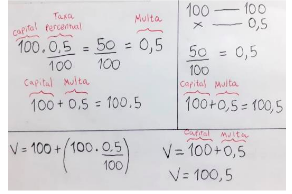 Capital Taxa Percentual Multa
100 . 0,5/100 = 50/100 = 0,5
Capital Multa
100 + 0,5 = 100.5
100 — 100
x — 0,5
50/100 = 0,5
Capital Multa
100+0,5 = 100,5
V = 100 + (100 . 0,5/100)
Capital Multa
V = 100 + 0,5
V = 100,5